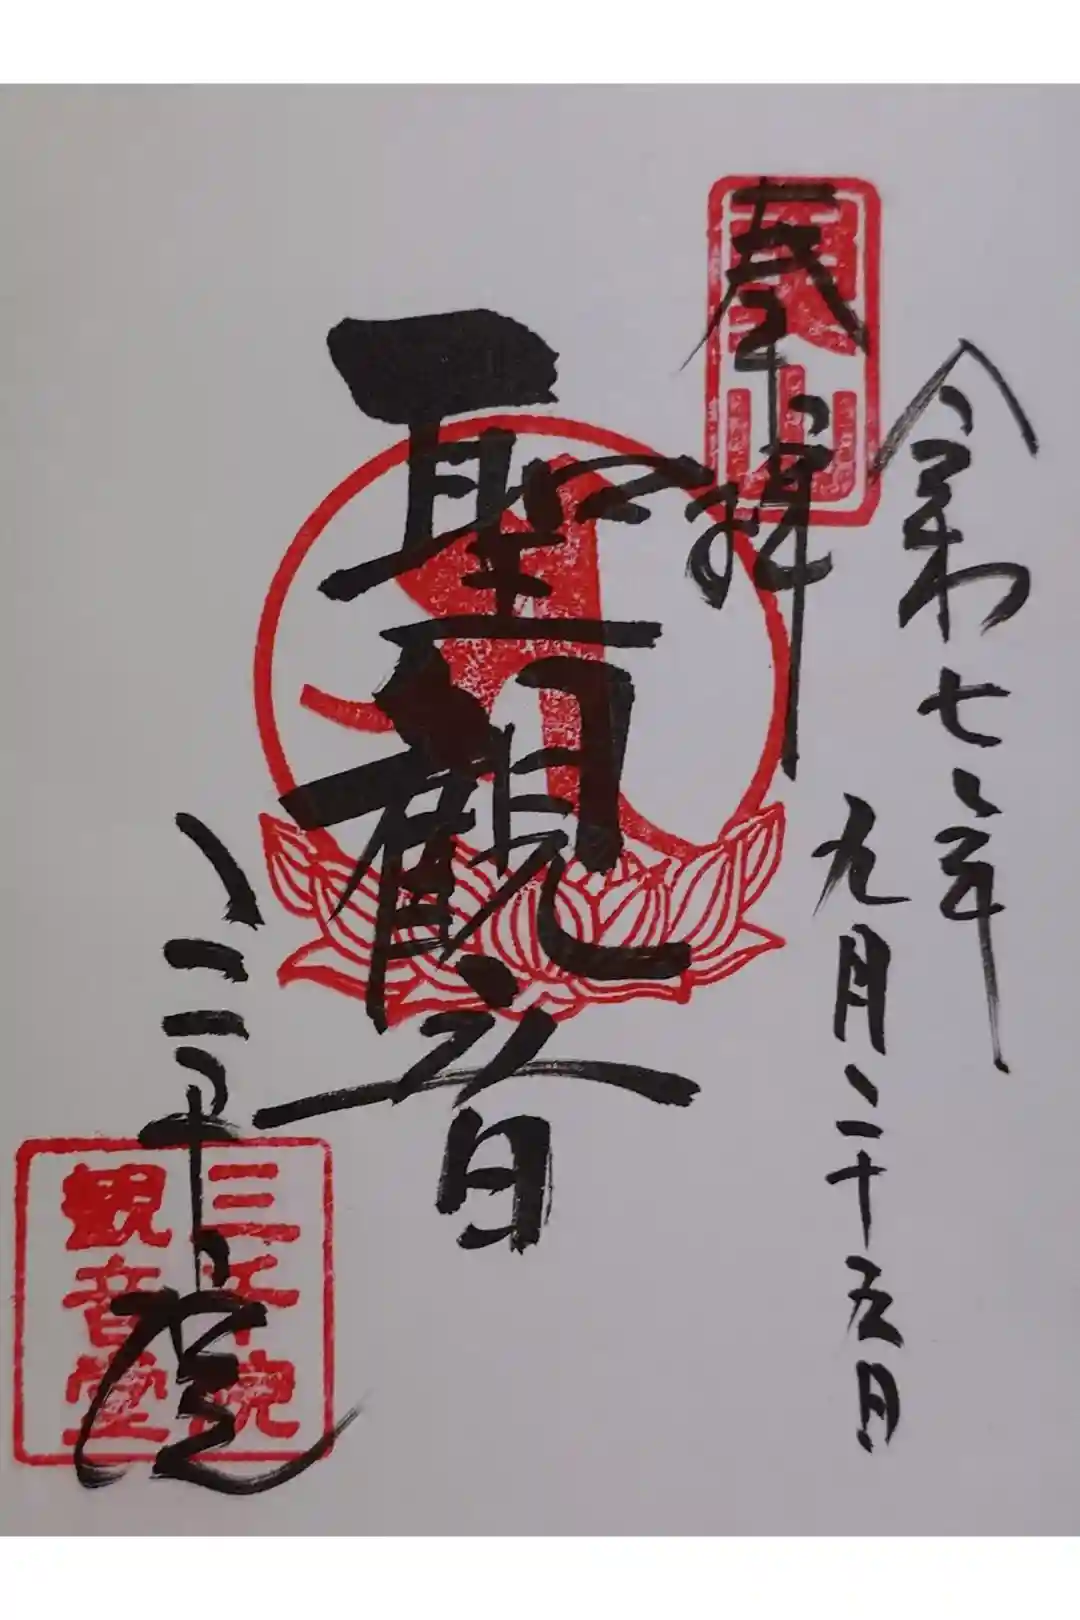 令和七年
九月二十五日
奉拝
魚山
聖観音
三千院
三千院
観音堂